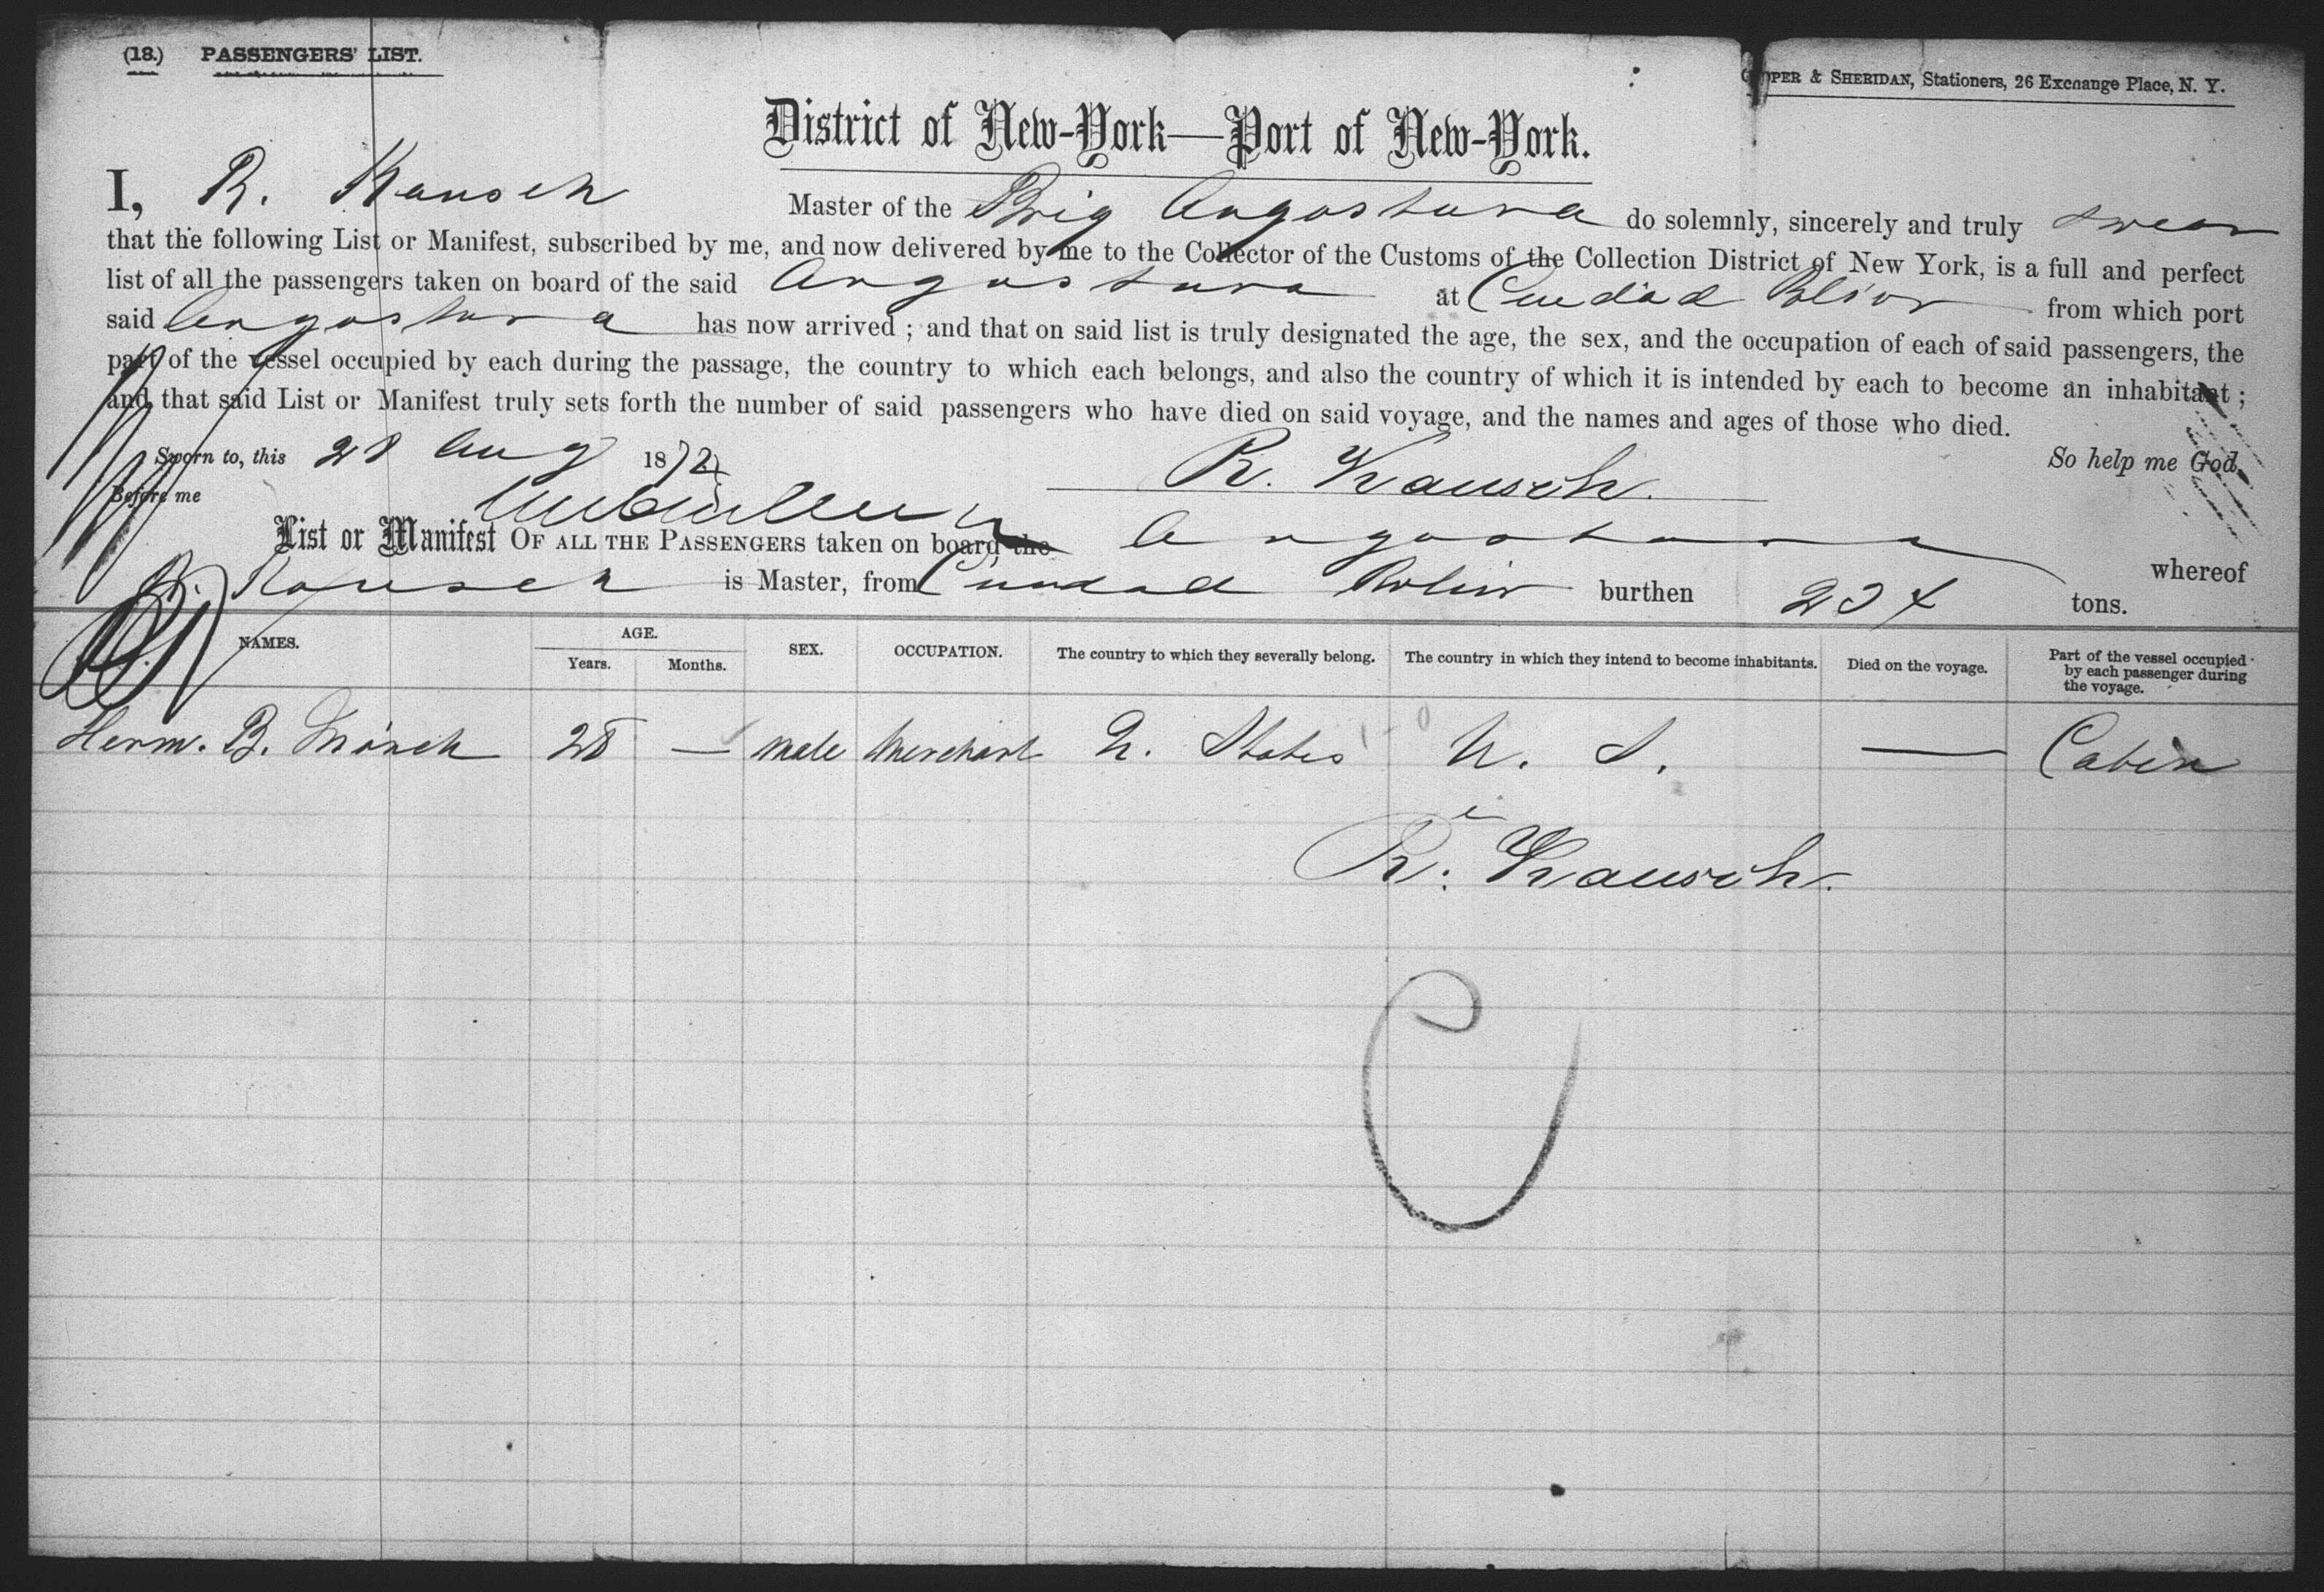 (18.) PASSENGERS' LIST.
PER & SHERIDAN, Stationers, 26 Exchange Place, N. Y.
District of New-York—Port of New-York.
I, R. Master of the Brig Angostura do solemnly, sincerely and truly swear
that the following List or Manifest, subscribed by me, and now delivered by me to the Collector of the Customs of the Collection District of New York, is a full and perfect
list of all the passengers taken on board of the said Angostura at Ciudad Bolivar from which port
said Angostura has now arrived ; and that on said list is truly designated the age, the sex, and the occupation of each of said passengers, the
part of the vessel occupied by each during the passage, the country to which each belongs, and also the country of which it is intended by each to become an inhabitant ;
and that said List or Manifest truly sets forth the number of said passengers who have died on said voyage, and the names and ages of those who died.
Sworn to, this 28 Aug 1872 R. So help me God.
Before me
List or Manifest OF ALL THE PASSENGERS taken on board the Angostura whereof
R. is Master, from Ciudad Bolivar burthen 234 tons.
NAMES. AGE. Years. Months. SEX. OCCUPATION. The country to which they severally belong. The country in which they intend to become inhabitants. Died on the voyage. Part of the vessel occupied by each passenger during the voyage.
Herm. B. 28 — Male Merchant U. States U. S. — Cabin
R.